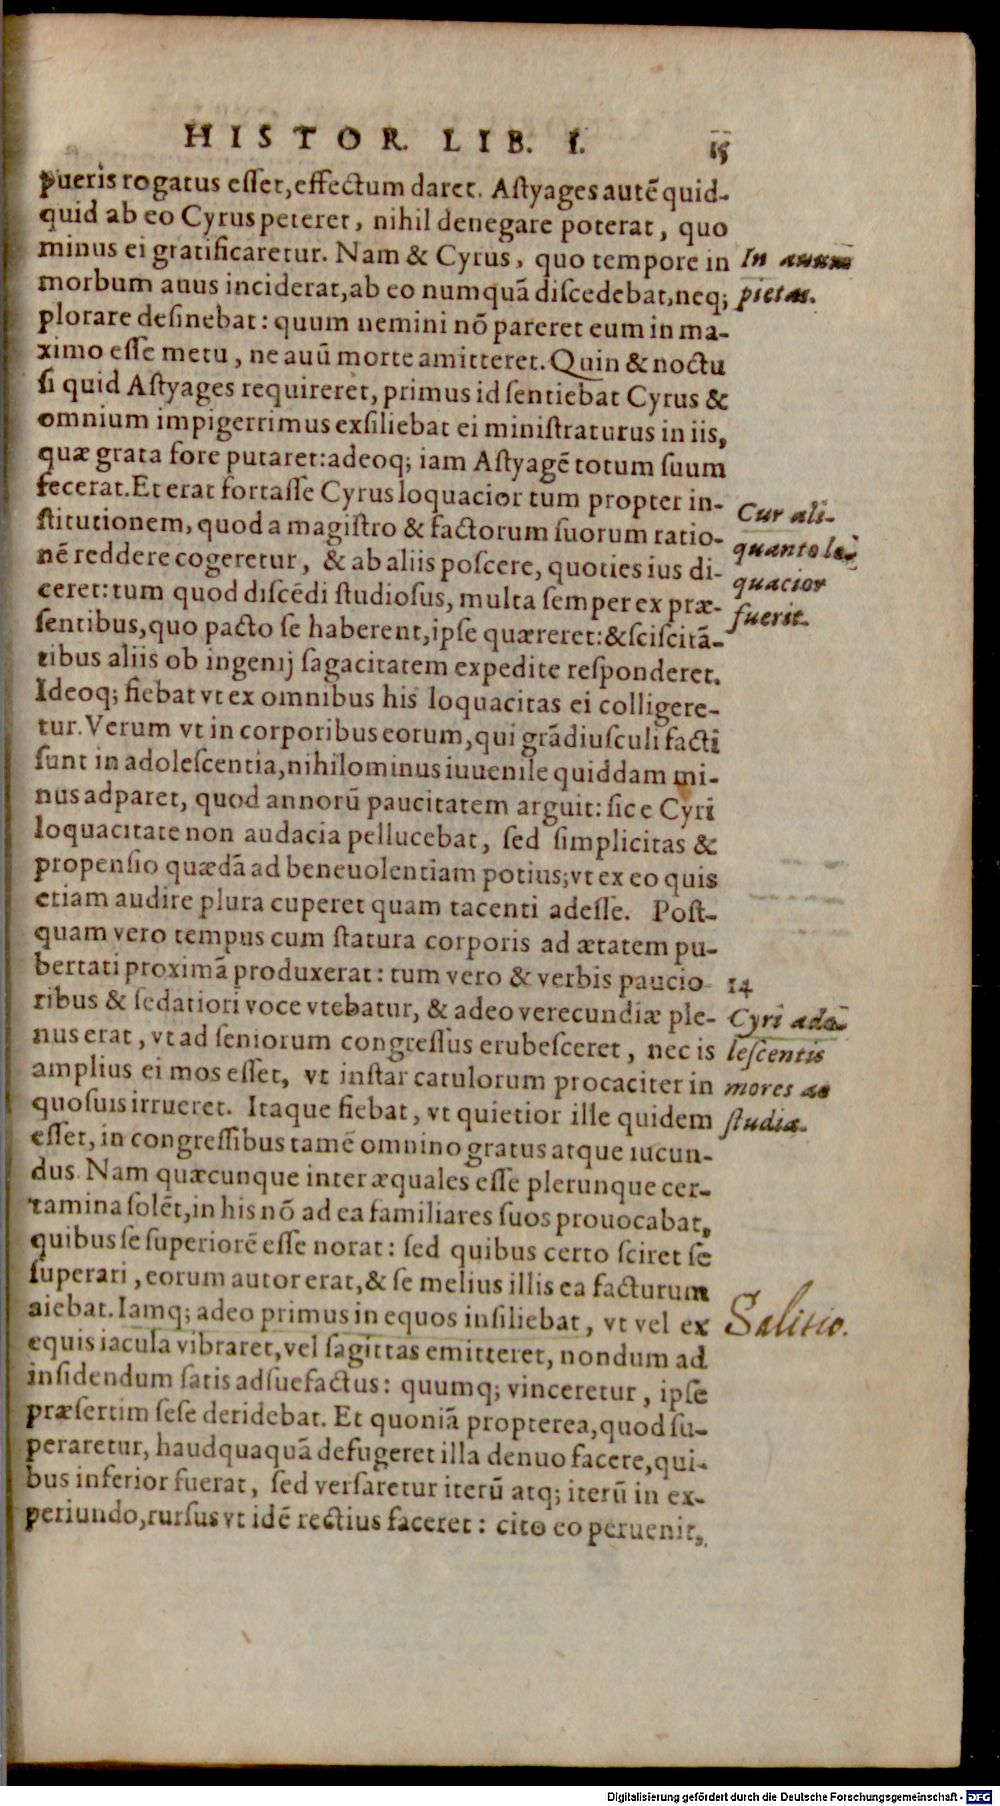 HISTOR. LIB. I. 15
pueris rogatus eſſet, effectum daret. Aſtyages autē quid-
quid ab eo Cyrus peteret, nihil denegare poterat, quo
minus ei gratificaretur. Nam & Cyrus, quo tempore in
morbum auus inciderat, ab eo numquā diſcedebat, neq;
plorare deſinebat: quum nemini nō pareret eum in ma-
ximo eſſe metu, ne auū morte amitteret. Quin & noctu
ſi quid Aſtyages requireret, primus id ſentiebat Cyrus &
omnium impigerrimus exſiliebat ei miniſtraturus in iis,
quæ grata fore putaret: adeoq; iam Aſtyagē totum ſuum
fecerat. Et erat fortaſſe Cyrus loquacior tum propter in-
ſtitutionem, quod a magiſtro & factorum ſuorum ratio-
nē reddere cogeretur, & ab aliis poſcere, quoties ius di-
ceret: tum quod diſcēdi ſtudioſus, multa ſemper ex præ-
ſentibus, quo pacto ſe haberent, ipſe quæreret: & ſciſcitā-
tibus aliis ob ingenij ſagacitatem expedite reſponderet.
Ideoq; fiebat vt ex omnibus his loquacitas ei colligere-
tur. Verum vt in corporibus eorum, qui grādiuſculi facti
ſunt in adoleſcentia, nihilominus iuuenile quiddam mi-
nus adparet, quod annorū paucitatem arguit: ſic e Cyri
loquacitate non audacia pellucebat, ſed ſimplicitas &
propenſio quædā ad beneuolentiam potius; vt ex eo quis
etiam audire plura cuperet quam tacenti adeſſe. Poſt-
quam vero tempus cum ſtatura corporis ad ætatem pu-
bertati proximā produxerat: tum vero & verbis paucio-
ribus & ſedatiori voce vtebatur, & adeo verecundiæ ple-
nus erat, vt ad ſeniorum congreſſus erubeſceret, nec is
amplius ei mos eſſet, vt inſtar catulorum procaciter in
quoſuis irrueret. Itaque fiebat, vt quietior ille quidem
eſſet, in congreſſibus tamē omnino gratus atque iucun-
dus. Nam quæcunque inter æquales eſſe plerunque cer-
tamina ſolēt, in his nō ad ea familiares ſuos prouocabat,
quibus ſe ſuperiorē eſſe norat: ſed quibus certo ſciret ſe
ſuperari, eorum autor erat, & ſe melius illis ea facturum
aiebat. Iamq; adeo primus in equos inſiliebat, vt vel ex
equis iacula vibraret, vel ſagittas emitteret, nondum ad
inſidendum ſatis adſuefactus: quumq; vinceretur, ipſe
præſertim ſeſe deridebat. Et quoniā propterea, quod ſu-
peraretur, haudquaquā defugeret illa denuo facere, qui-
bus inferior fuerat, ſed verſaretur iterū atq; iterū in ex-
periundo, rurſus vt idē rectius faceret: cito eo peruenit,
In auum
pietas.
Cur ali-
quanto lo-
quacior
fuerit.
14
Cyri ado-
leſcentis
mores ac
ſtudia.
Salitio.
Digitalisierung gefördert durch die Deutsche Forschungsgemeinschaft - DFG